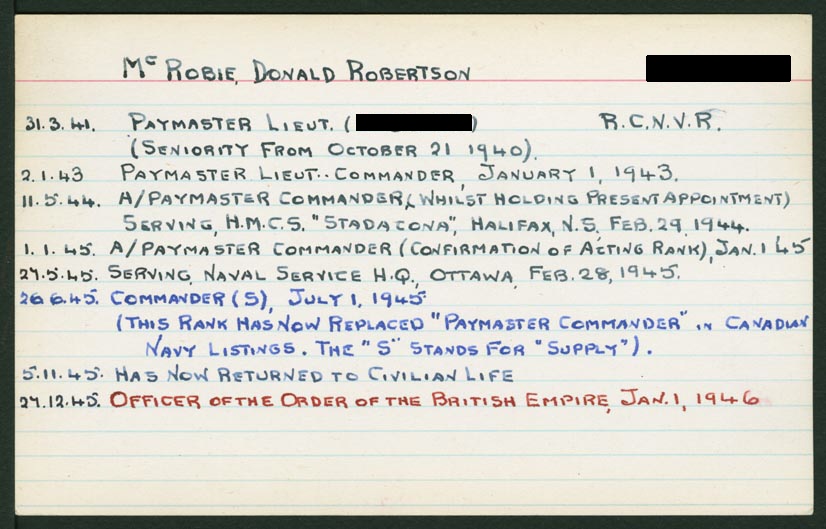 Mc ROBIE, DONALD ROBERTSON
31.3.41. PAYMASTER LIEUT. ( ) R.C.N.V.R.
(SENIORITY FROM OCTOBER 21 1940).
2.1.43 PAYMASTER LIEUT.. COMMANDER, JANUARY 1, 1943.
11.5.44. A/PAYMASTER COMMANDER, (WHILST HOLDING PRESENT APPOINTMENT)
SERVING, H.M.C.S. "STADACONA", HALIFAX, N.S. FEB. 29, 1944.
1.1.45. A/PAYMASTER COMMANDER (CONFIRMATION OF ACTING RANK), JAN. 1 45
27.5.45. SERVING, NAVAL SERVICE H.Q., OTTAWA, FEB. 28, 1945.
26.6.45. COMMANDER (S), JULY 1, 1945
(THIS RANK HAS NOW REPLACED "PAYMASTER COMMANDER" IN CANADIAN
NAVY LISTINGS. THE "S" STANDS FOR "SUPPLY").
5.11.45. HAS NOW RETURNED TO CIVILIAN LIFE
27.12.45. OFFICER OF THE ORDER OF THE BRITISH EMPIRE, JAN. 1, 1946